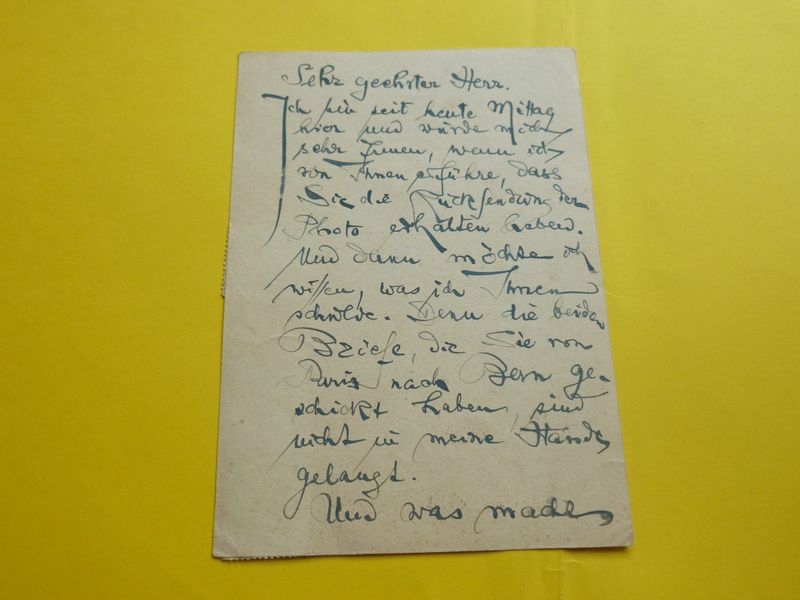 Sehr geehrter Herr.
Ich bin seit heute Mittag
hier und würde mich
sehr freuen, wenn ich
von Ihnen erführe, dass
Sie die Rücksendung der
Photo erhalten haben.
Und dann möchte ich
wissen, was ich Ihnen
schulde. Denn die beiden
Briefe, die Sie von
Paris nach Bern ge-
schickt haben, sind
nicht in meine Hände
gelangt.
Und was machen